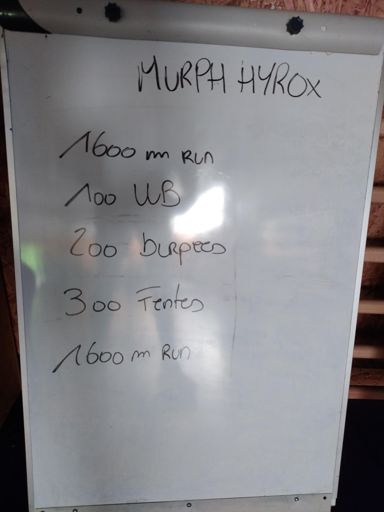 MURPH HYROX
1600 m RUN
100 WB
200 BURPEES
300 FENTES
1600 m RUN